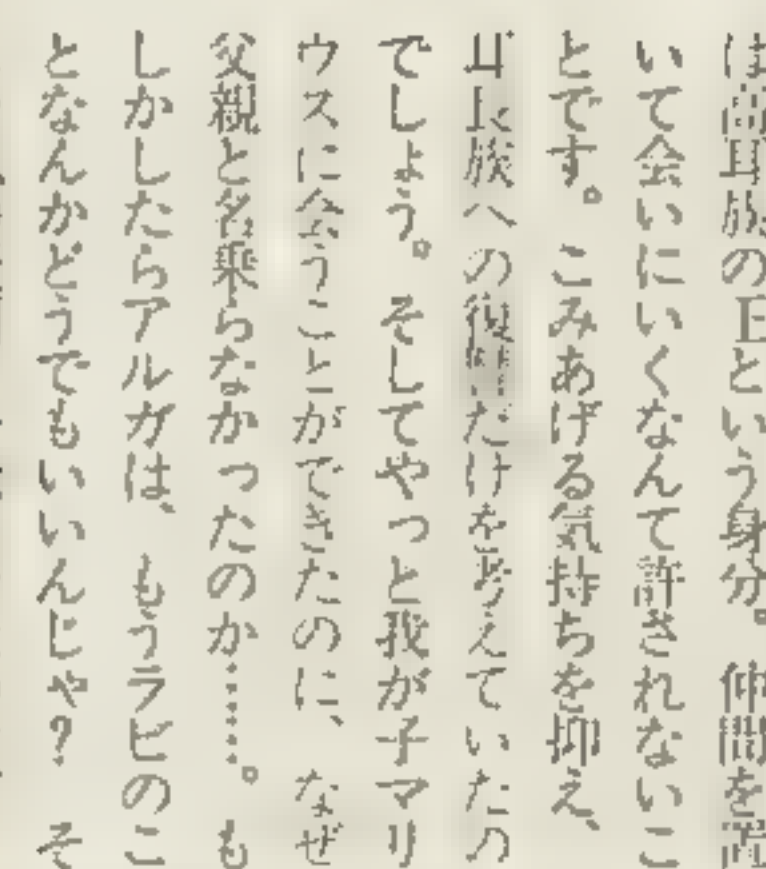 は高耳族の王という身分。仲間を置
いて会いにいくなんて許されないこ
とです。こみあげる気持ちを抑え、
耳長族への復讐だけを考えていたの
でしょう。そしてやっと我が子マリ
ウスに会うことができたのに、なぜ
父親と名乗らなかったのか……。も
しかしたらアルガは、もうラビのこ
となんかどうでもいいんじゃ？　そ